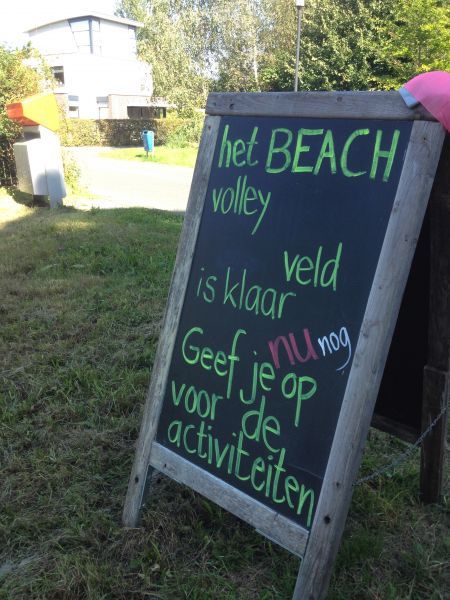 het BEACH
volley
veld
is klaar
Geef je nu nog
op
voor de
activiteiten